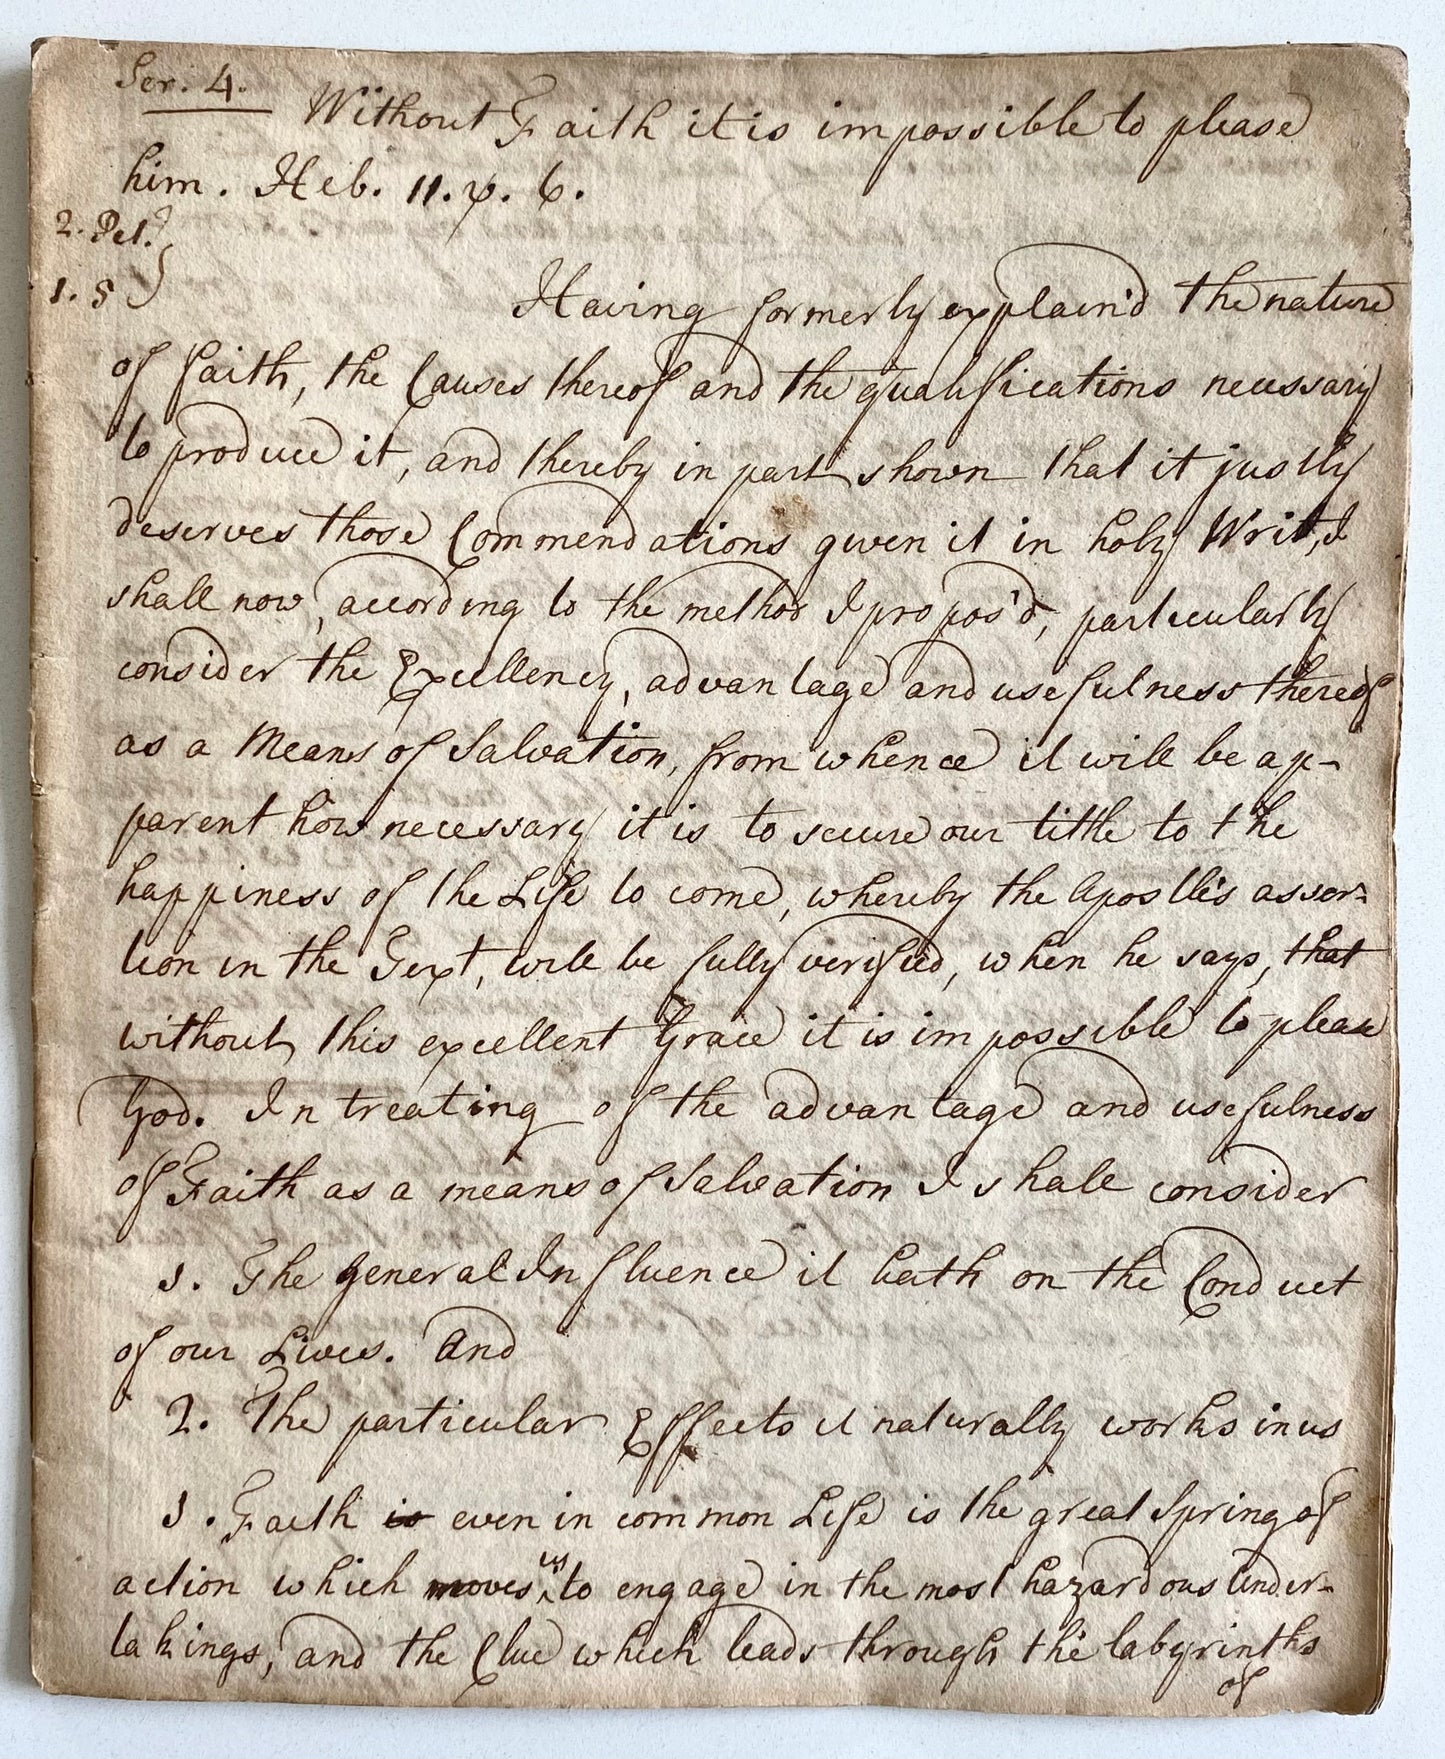 Ser. 4.
Without Faith it is impossible to please
him. Heb. 11. v. 6.
2. Pet.
1. 5
Having formerly explain'd the nature
of faith, the Causes thereof and the qualifications necessary
to produce it, and thereby in part shown that it justly
deserves those Commendations given it in holy Writ, I
shall now, according to the method I propos'd, particularly
consider the Excellency, advantage and usefulness thereof
as a Means of Salvation, from whence it will be ap-
parent how necessary it is to secure our tittle to the
happiness of the Life to come, whereby the Apostle's asser-
tion in the Text, will be fully verified, when he says, that
without this excellent Grace it is impossible to please
God. In treating of the advantage and usefulness
of Faith as a means of Salvation I shall consider
1. The general Influence it hath on the Conduct
of our Lives. And
2. The particular Effects it naturally works in us
1. Faith is even in common Life is the great Spring of
action which moves us to engage in the most hazardous Under-
takings, and the Clue which leads through the labyrinths
of